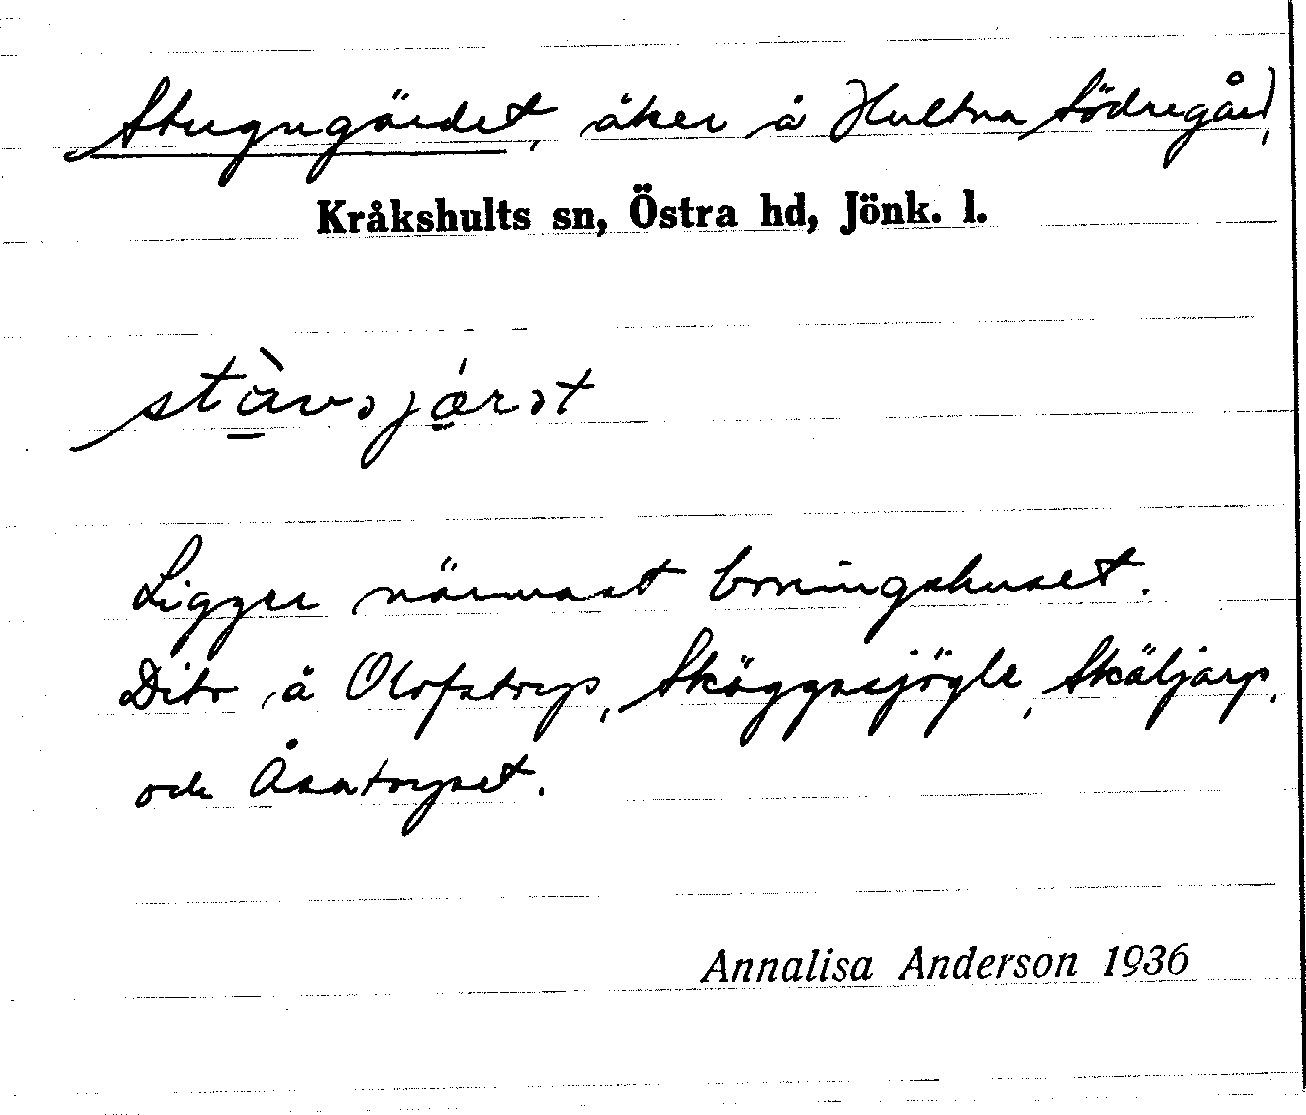 Stugugärdet, åker å Hultna Södregård,
Kråkshults sn, Östra hd, Jönk. l.
Ligger närmast boningshuset.
Dito å Olofstorp, Sköggssjögle, Skäljarp,
och Åsatorpet.
Annalisa Anderson 1936